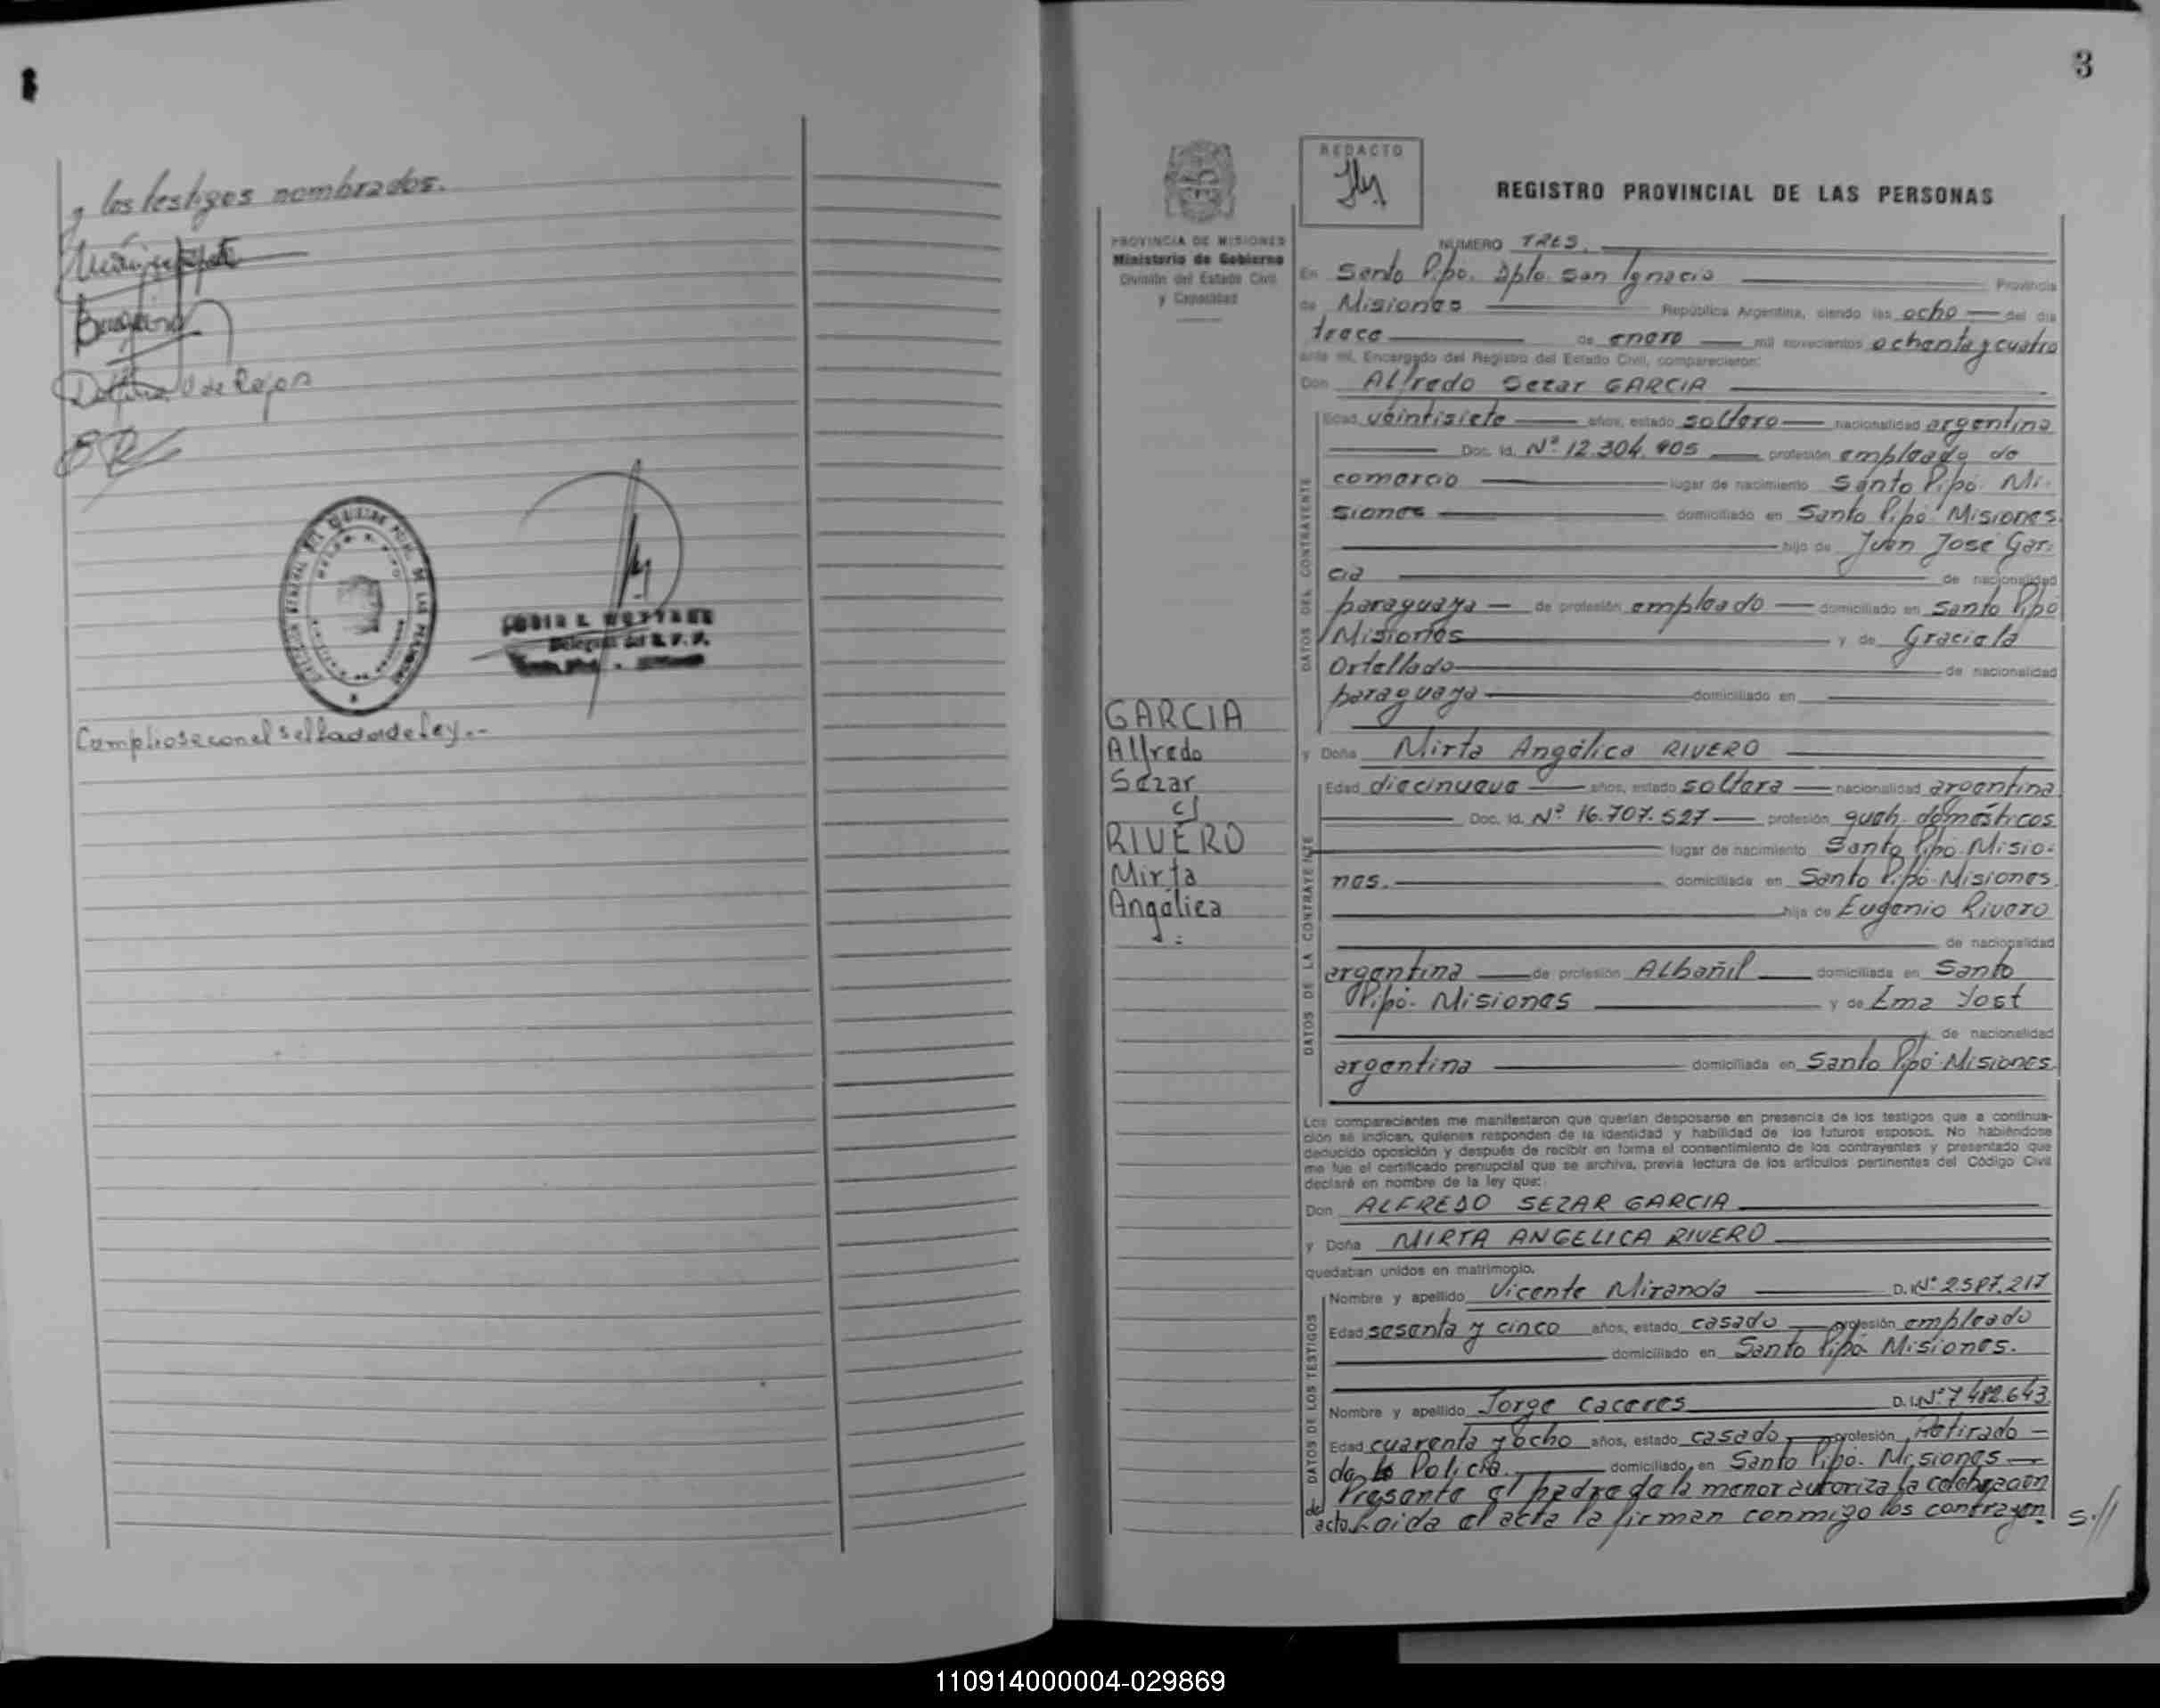 y los testigos nombrados.
Delegado del R. P. P.
Cumpliose con el sellado de Ley.-
3
REDACTO
REGISTRO PROVINCIAL DE LAS PERSONAS
PROVINCIA DE MISIONES
Ministerio de Gobierno
División del Estado Civil
y Capacidad
NUMERO TRES.
En Santo Pipó. Dpto. San Ignacio Provincia
de Misiones República Argentina, siendo las ocho del día
trece de enero mil novecientos ochenta y cuatro
ante mí, Encargado del Registro del Estado Civil, comparecieron:
Don Alfredo Sezar GARCIA
DATOS DEL CONTRAYENTE
Edad veintisiete años, estado soltero nacionalidad argentina
Doc. Id. Nº 12.304.905 profesión empleado de
comercio lugar de nacimiento Santo Pipó. Mi-
siones domiciliado en Santo Pipó Misiones.
hijo de Juan José Gar-
cia de nacionalidad
paraguaya de profesión empleado domiciliado en Santo Pipó
Misiones y de Graciela
Ortellado de nacionalidad
paraguaya domiciliado en
GARCIA
Alfredo
Sezar
c/
RIVERO
Mirta
Angélica
y Doña Mirta Angélica RIVERO
DATOS DE LA CONTRAYENTE
Edad diecinueve años, estado soltera nacionalidad argentina
Doc. Id. Nº 16.707.527 profesión queh. domésticos
lugar de nacimiento Santo Pipó. Misio-
nes. domiciliada en Santo Pipó-Misiones.
hija de Eugenio Rivero
de nacionalidad
argentina de profesión Albañil domiciliada en Santo
Pipó. Misiones y de Ema Yost
de nacionalidad
argentina domiciliada en Santo Pipó-Misiones.
Los comparecientes me manifestaron que querían desposarse en presencia de los testigos que a continua-
ción se indican, quienes responden de la identidad y habilidad de los futuros esposos. No habiéndose
deducido oposición y después de recibir en forma el consentimiento de los contrayentes y presentado que
me fue el certificado prenupcial que se archiva, previa lectura de los artículos pertinentes del Código Civil
declaré en nombre de la ley que:
Don ALFREDO SEZAR GARCIA
y Doña MIRTA ANGELICA RIVERO
quedaban unidos en matrimonio.
DATOS DE LOS TESTIGOS
Nombre y apellido Vicente Miranda D. I. Nº 2.587.217
Edad sesenta y cinco años, estado casado profesión empleado
domiciliado en Santo Pipó Misiones.
Nombre y apellido Jorge Caceres D. I. Nº 7.482.643
Edad cuarenta y ocho años, estado casado profesión Retirado
de la Policía. domiciliado en Santo Pipó. Misiones
Presente el padre de la menor autoriza la celebración
del acto. Leida el acta la firman conmigo los contrayen- s.//
110914000004-029869